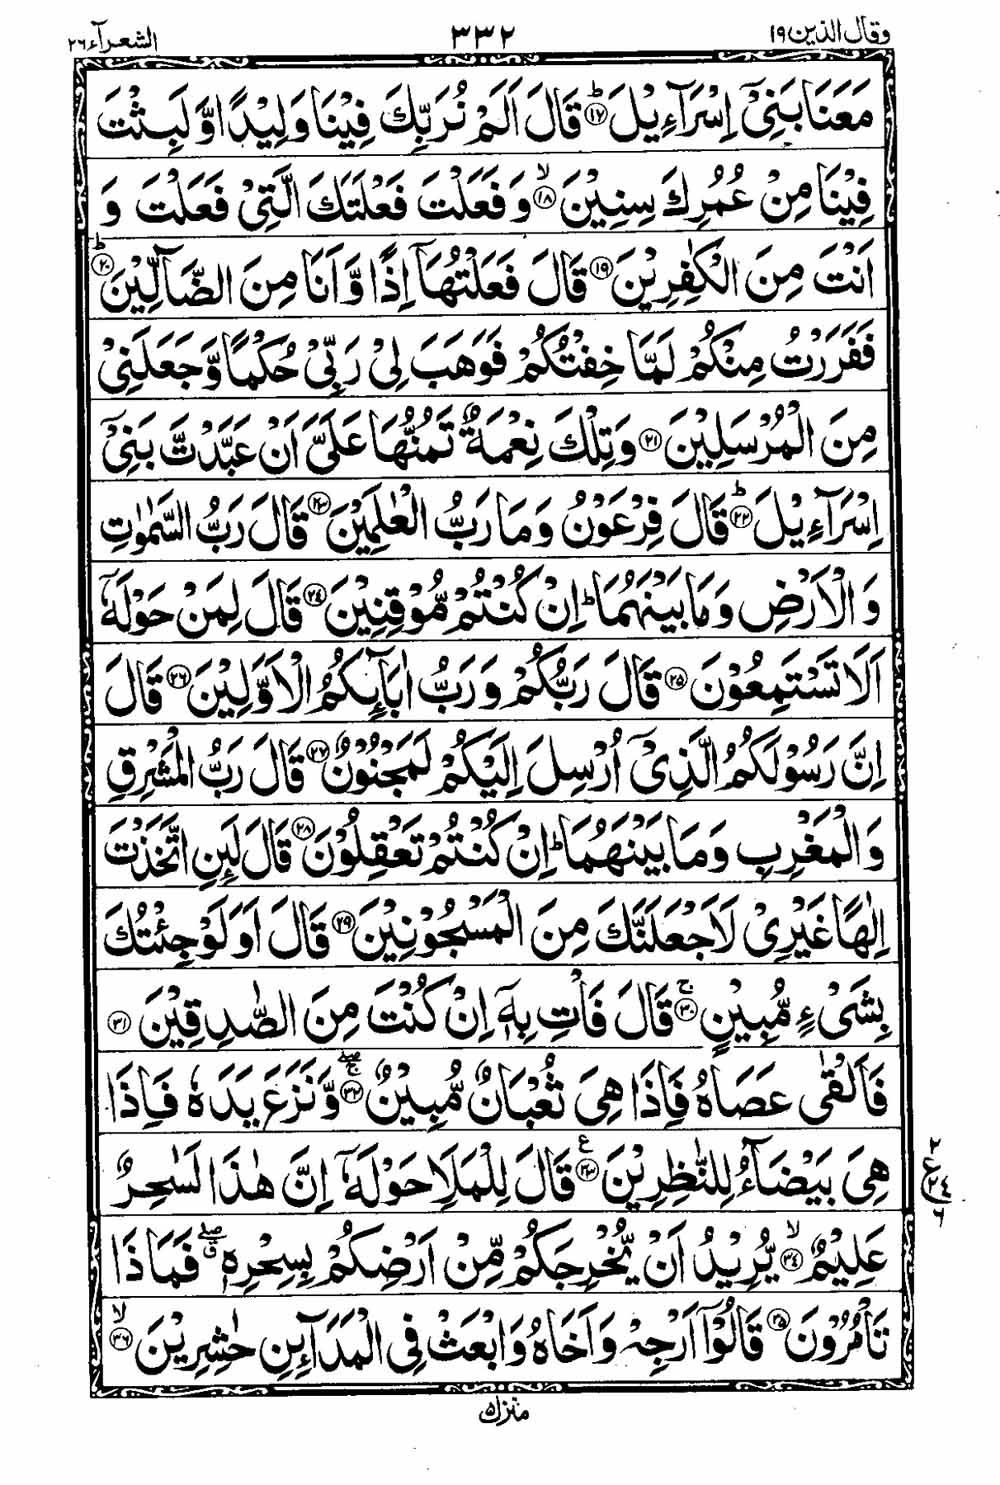 وقال الذین ١٩ ٣٣٢ الشعرآء ٢٦
مَعَنَا بَنِیْۤ اِسْرَآءِیْلَؕ ۝١٧ قَالَ اَلَمْ نُرَبِّكَ فِیْنَا وَلِیْدًا وَّ لَبِثْتَ
فِیْنَا مِنْ عُمُرِكَ سِنِیْنَۙ ۝١٨ وَ فَعَلْتَ فَعْلَتَكَ الَّتِیْ فَعَلْتَ وَ
اَنْتَ مِنَ الْكٰفِرِیْنَ ۝١٩ قَالَ فَعَلْتُهَاۤ اِذًا وَّ اَنَا مِنَ الضَّآلِّیْنَؕ ۝٢٠
فَفَرَرْتُ مِنْكُمْ لَمَّا خِفْتُكُمْ فَوَهَبَ لِیْ رَبِّیْ حُكْمًا وَّ جَعَلَنِیْ
مِنَ الْمُرْسَلِیْنَ ۝٢١ وَ تِلْكَ نِعْمَةٌ تَمُنُّهَا عَلَیَّ اَنْ عَبَّدْتَّ بَنِیْۤ
اِسْرَآءِیْلَؕ ۝٢٢ قَالَ فِرْعَوْنُ وَ مَا رَبُّ الْعٰلَمِیْنَ ۝٢٣ قَالَ رَبُّ السَّمٰوٰتِ
وَ الْاَرْضِ وَ مَا بَیْنَهُمَاؕ اِنْ كُنْتُمْ مُّوْقِنِیْنَ ۝٢٤ قَالَ لِمَنْ حَوْلَهٗۤ
اَلَا تَسْتَمِعُوْنَ ۝٢٥ قَالَ رَبُّكُمْ وَ رَبُّ اٰبَآىِٕكُمُ الْاَوَّلِیْنَ ۝٢٦ قَالَ
اِنَّ رَسُوْلَكُمُ الَّذِیْۤ اُرْسِلَ اِلَیْكُمْ لَمَجْنُوْنٌ ۝٢٧ قَالَ رَبُّ الْمَشْرِقِ
وَ الْمَغْرِبِ وَ مَا بَیْنَهُمَاؕ اِنْ كُنْتُمْ تَعْقِلُوْنَ ۝٢٨ قَالَ لَىِٕنِ اتَّخَذْتَ
اِلٰهًا غَیْرِیْ لَاَجْعَلَنَّكَ مِنَ الْمَسْجُوْنِیْنَ ۝٢٩ قَالَ اَوَ لَوْ جِئْتُكَ
بِشَیْءٍ مُّبِیْنٍۚ ۝٣٠ قَالَ فَاْتِ بِهٖۤ اِنْ كُنْتَ مِنَ الصّٰدِقِیْنَ ۝٣١
فَاَلْقٰى عَصَاهُ فَاِذَا هِیَ ثُعْبَانٌ مُّبِیْنٌۚۖ ۝٣٢ وَّ نَزَعَ یَدَهٗ فَاِذَا
هِیَ بَیْضَآءُ لِلنّٰظِرِیْنَ ۝٣٣ ع قَالَ لِلْمَلَاِ حَوْلَهٗۤ اِنَّ هٰذَا لَسٰحِرٌ
ع ٢ ٢٤ ٦
عَلِیْمٌۙ ۝٣٤ یُّرِیْدُ اَنْ یُّخْرِجَكُمْ مِّنْ اَرْضِكُمْ بِسِحْرِهٖۗۖ فَمَاذَا
تَاْمُرُوْنَ ۝٣٥ قَالُوْۤا اَرْجِهْ وَ اَخَاهُ وَ ابْعَثْ فِی الْمَدَآىِٕنِ حٰشِرِیْنَۙ ۝٣٦
منزل ٥